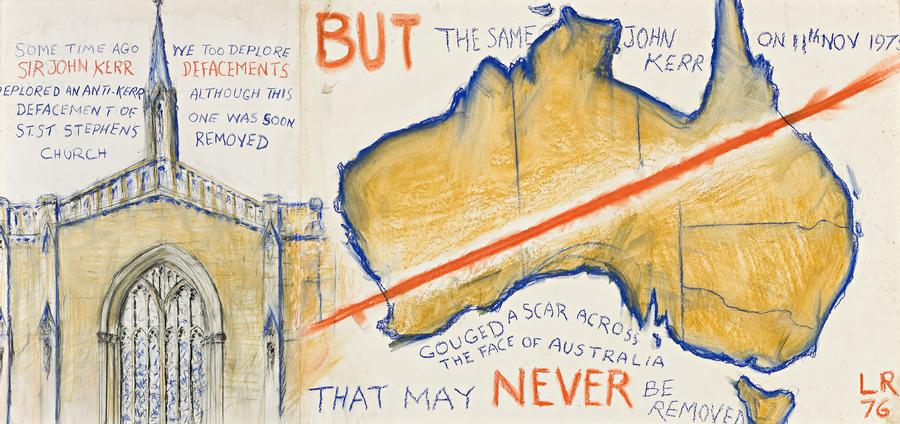 SOME TIME AGO
SIR JOHN KERR
DEPLORED AN ANTI-KERR
DEFACEMENT OF
ST.ST STEPHENS
CHURCH
WE TOO DEPLORE
DEFACEMENTS
ALTHOUGH THIS
ONE WAS SOON
REMOVED
BUT THE SAME JOHN
KERR
ON 11th NOV 1975
GOUGED A SCAR ACROSS
THE FACE OF AUSTRALIA
THAT MAY NEVER BE
REMOVED
LR
76